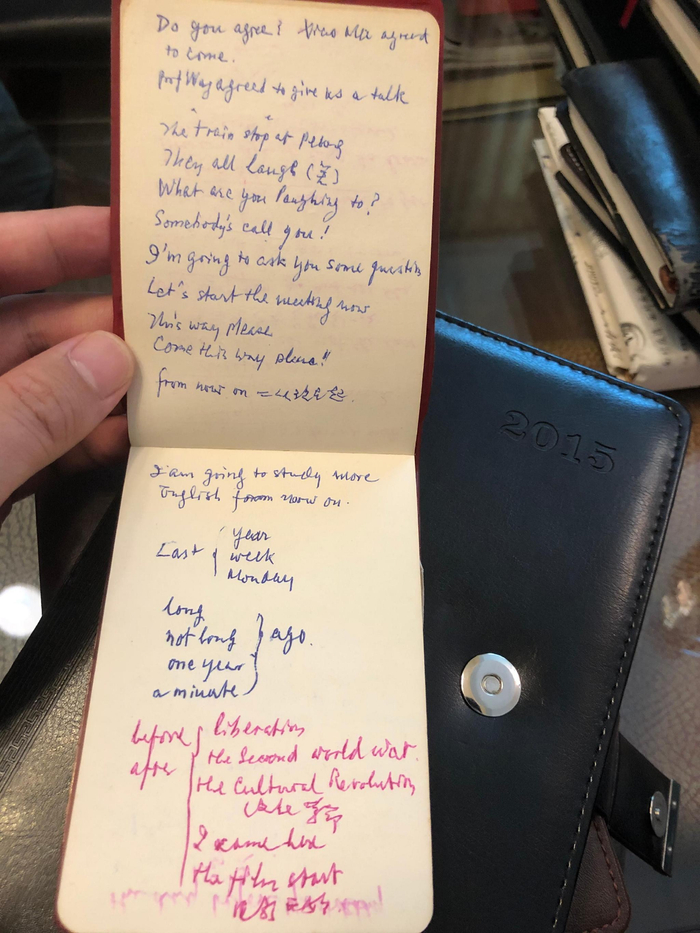 Do you agree? Xiao Ma agreed
to come.
Prof Wang agreed to give us a talk
The train stop at
They all laugh (笑)
What are you laughing to?
Somebody's call you!
I'm going to ask you some question
Let's start the meeting now
This way please
Come this way please!!
from now on =
I am going to study more
English from now on.
Last { year
week
Monday
long
not long } ago.
one year
a minute
before { liberation
after the Second world war.
the Cultural Revolution
I came here
the film start
2015